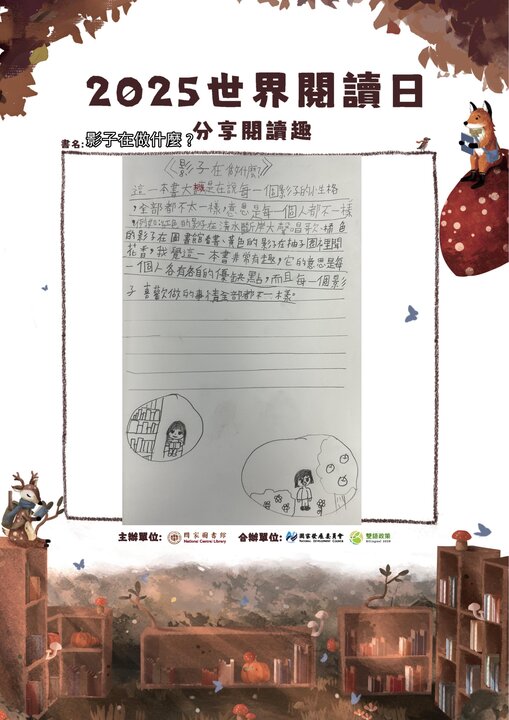 2025世界閱讀日
分享閱讀趣
書名:影子在做什麼？
《影子在做什麼?》
這一本書大概是在說每一個影子的小性格
，全部都不太一樣，意思是每一個人都不一樣
，例如:紅色的影子在清水斷岸大聲唱歌、橘色
的影子在圖書館看書、黃色的影子在柚子園裡聞
花香，我覺這一本書非常有趣，它的意思是每
一個人各有各自的優缺點，而且每一個影
子喜歡做的事情全部都不一樣。
主辦單位: 國家圖書館 合辦單位: 國家發展委員會 雙語政策
National Central Library NATIONAL DEVELOPMENT COUNCIL Bilingual 2030